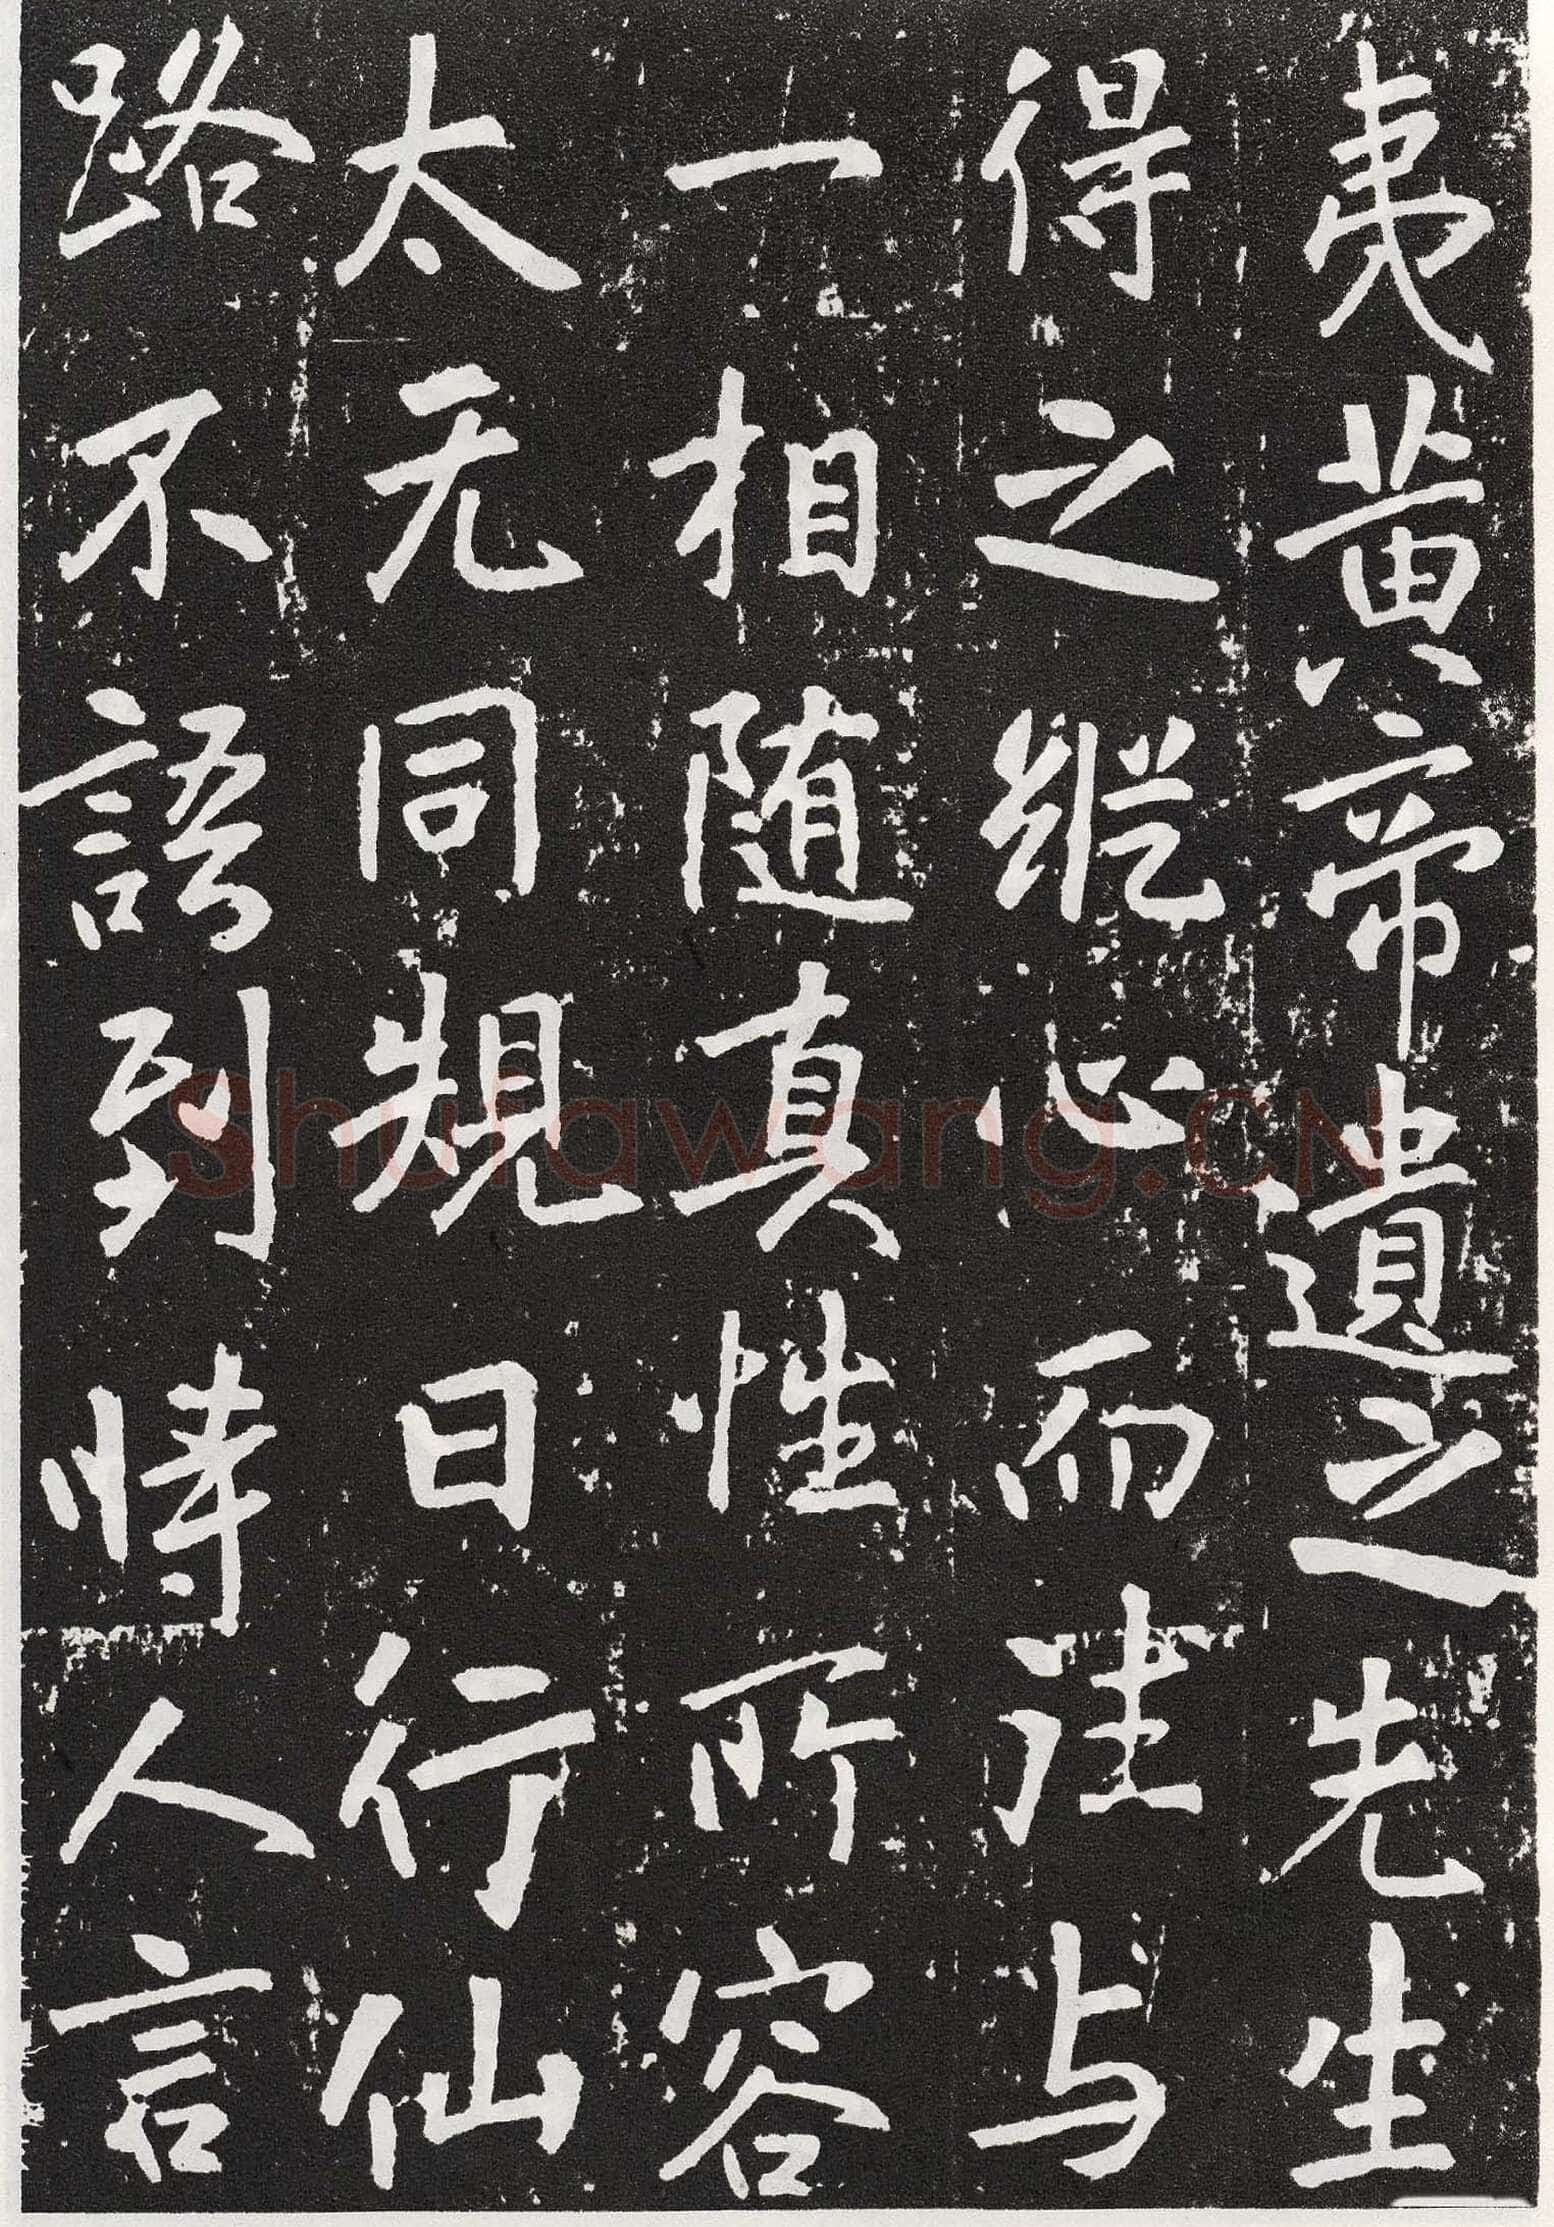 夷黄帝遺之先生
得之縱心而与
一相随真性所容
太无同規日行仙
路不語到恃人言
Shufawang.CN